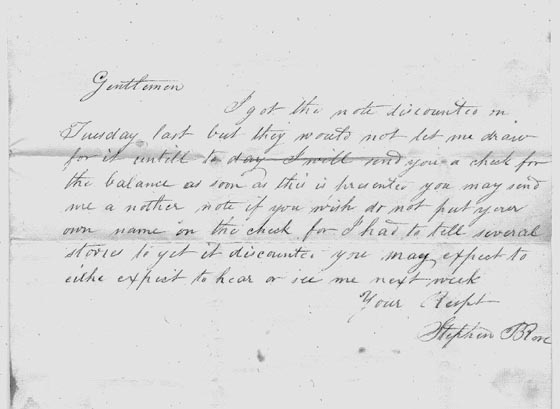 Gentlemen
I got the note discounted on
Tuesday last but they would not let me draw
for it untill to day I will send you a check for
the balance as soon as this is presented you may send
me a nother note if you wish do not put your
own name on the check for I had to tell several
stories to get it discounted you may expect to
eithe expect to hear or see me next week
Your Respt
Stephen B Rose